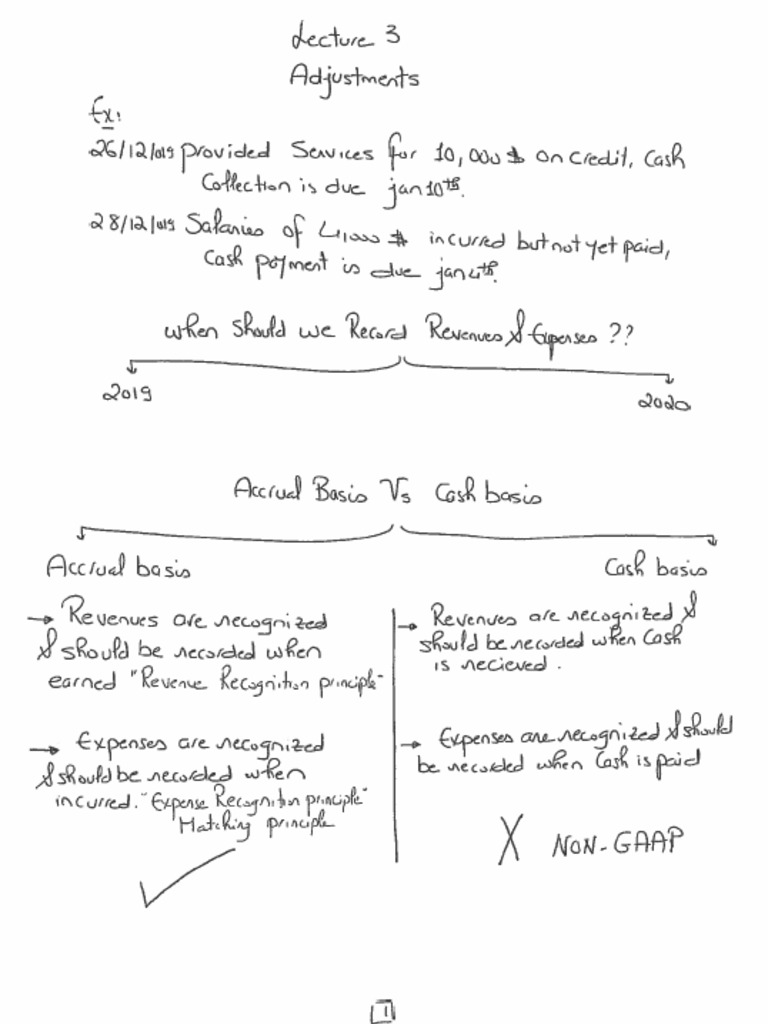 Lecture 3
Adjustments
Ex:
26/12/019 provided Services for 10,000$ on credit, Cash
Collection is due jan 10th.
28/12/019 Salaries of 4,000$ incurred but not yet paid,
Cash payment is due jan 4th.
when should we Record Revenues & Expenses ??
2019
2020
Accrual Basis Vs Cash basis
Accrual basis
→ Revenues are recognized
& should be recorded when
earned "Revenue Recognition principle"
→ Expenses are recognized
& should be recorded when
incurred. "Expense Recognition principle"
Matching principle
Cash basis
→ Revenues are recognized &
should be recorded when Cash
is recieved.
→ Expenses are recognized & should
be recorded when Cash is paid
X NON-GAAP
1